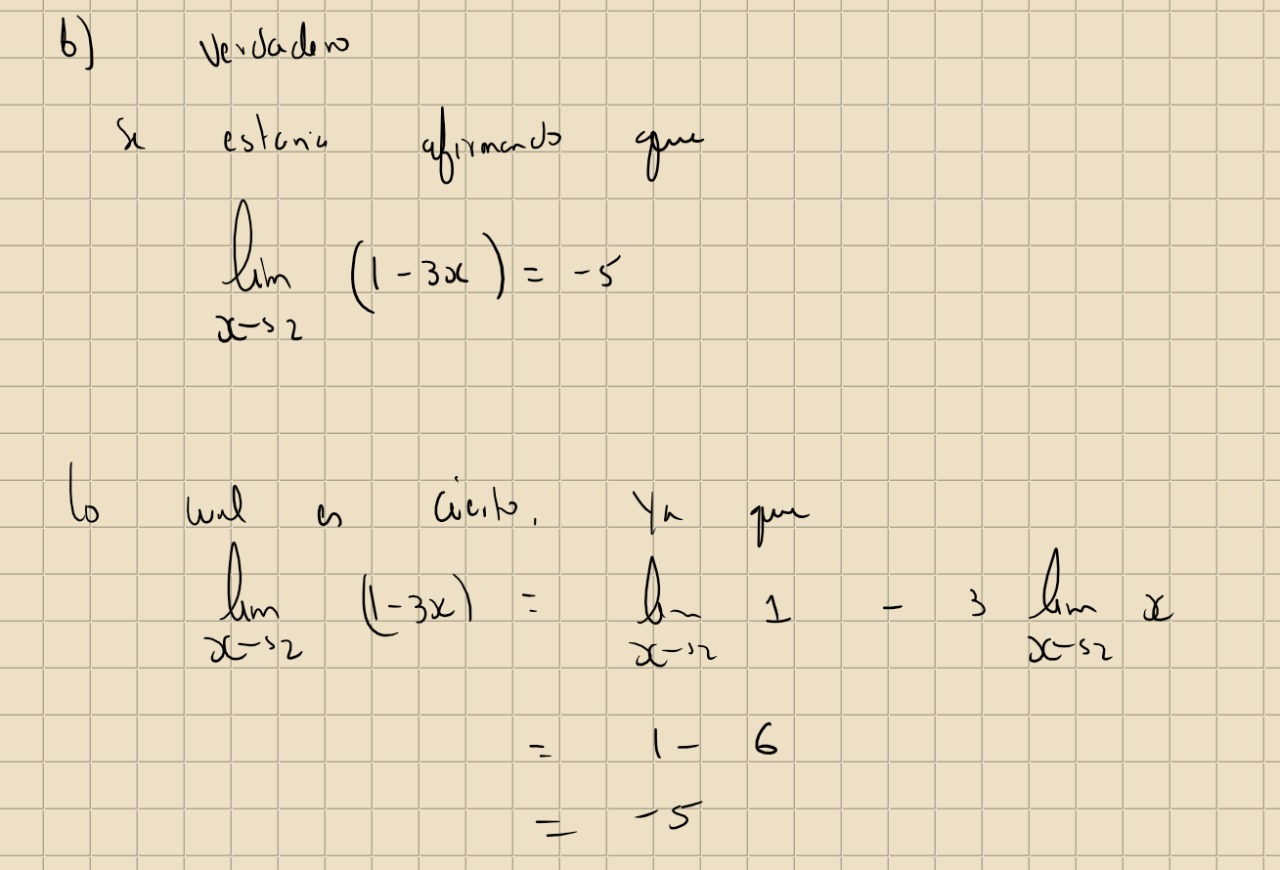 b) Verdadero
Se estaria afirmando que
lim (1 - 3x) = -5
x→2
lo cual es cierto. Ya que
lim (1-3x) = lim 1 - 3 lim x
x→2 x→2 x→2
= 1 - 6
= -5